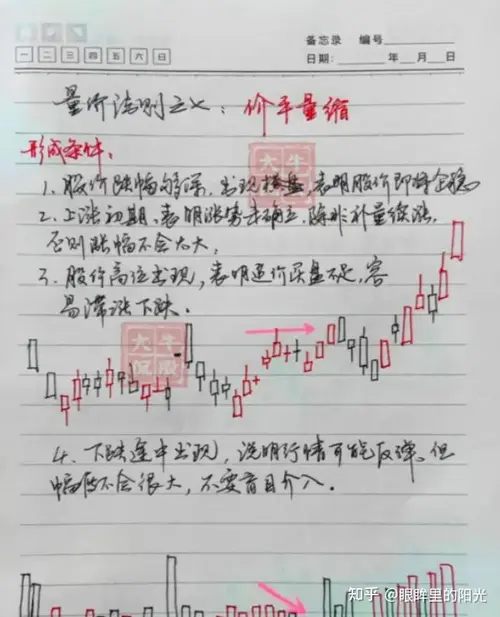 备忘录 编号
一 二 三 四 五 六 日
日期: 年 月 日
量价法则之七：价平量缩
形成条件：
1、股价跌幅够深，出现横盘，表明股价即将企稳
2、上涨初期、表明涨势未确立、除非补量续涨，
否则涨幅不会太大；
3、股价高位出现，表明追价买盘不足，容
易滞涨下跌．
大牛
侃股
4、下跌途中出现，说明行情可能反弹、但
幅度不会很大，不要盲目介入．
知乎 @眼眸里的阳光